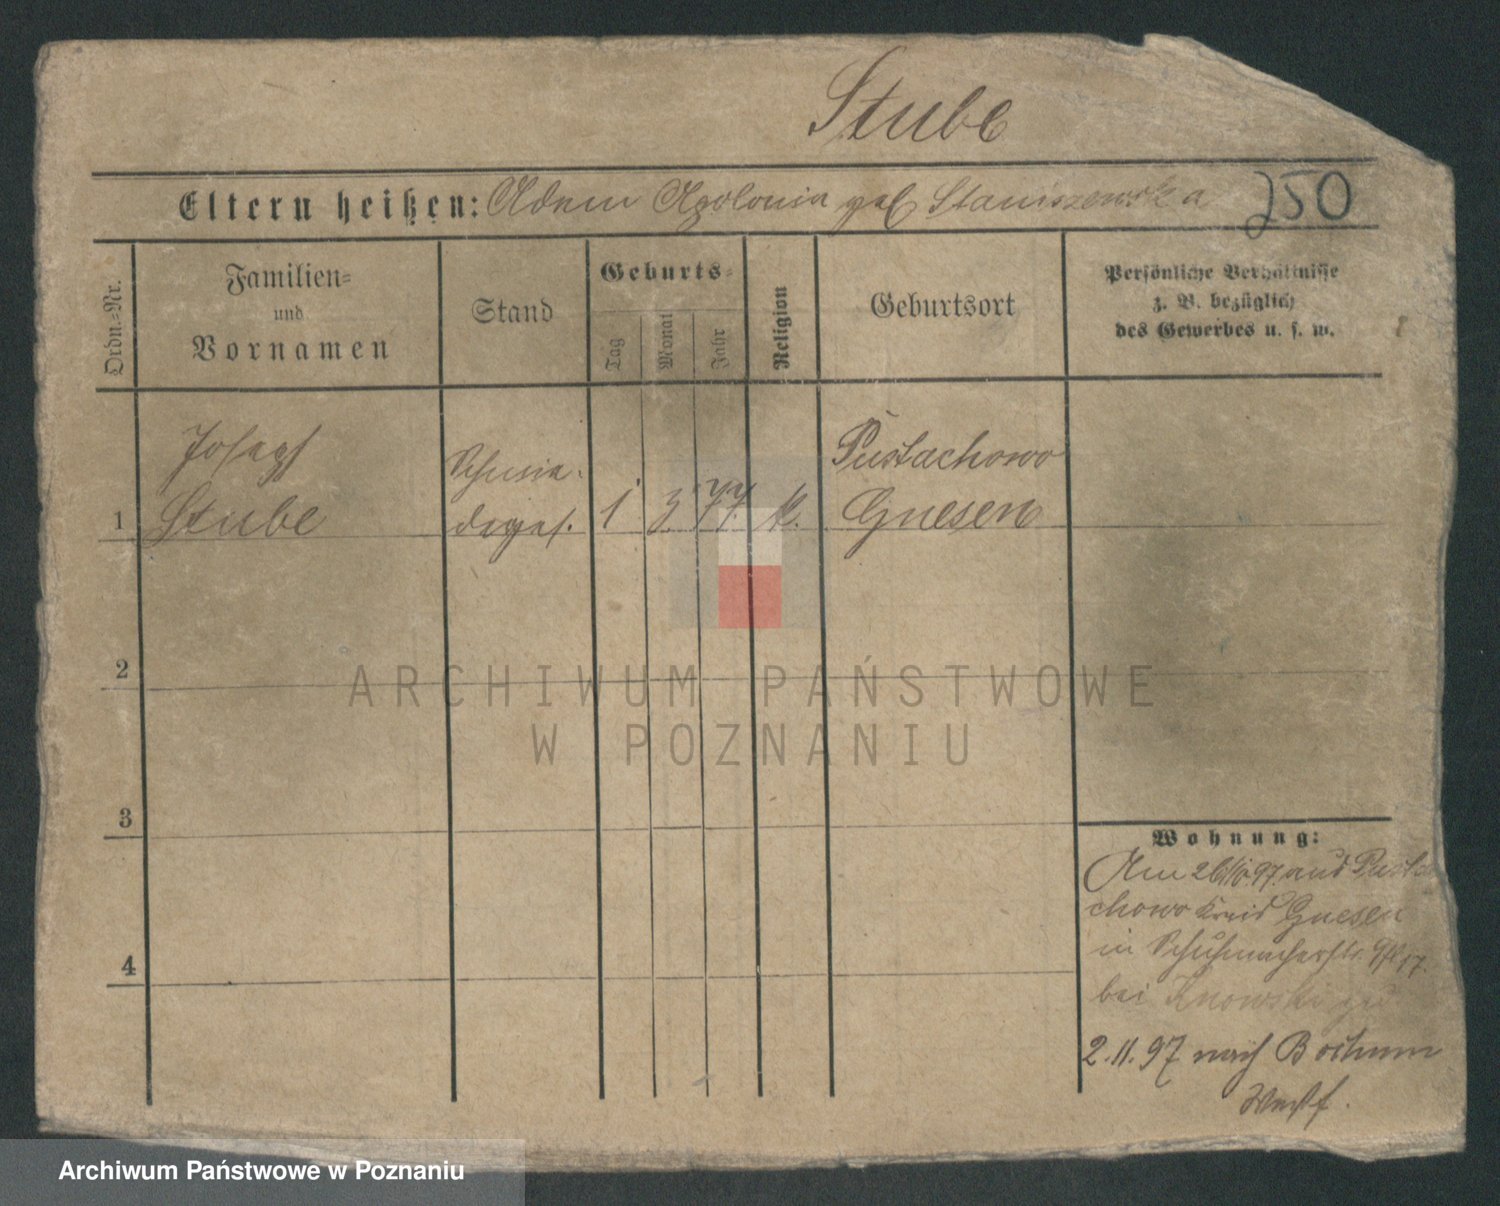 Stube
Eltern heißen: Adam Apolonia geb Staniszewska 250
Ordn.-Nr.
Familien-
und
Vornamen
Stand
Geburts-
Tag
Monat
Jahr
Religion
Geburtsort
Persönliche Verhältnisse
z. B. bezüglich
des Gewerbes u. s. w.
Joseph Pustachowo
1 Stube 1 3 77 k. Gnesen
2
3
4
Wohnung:
Am 26/10.97. aus Pusta
chowo Kreis Gnesen
in Schuhmacherstr. 17.
bei
2.11.97 nach Bochum
Westf.
ARCHIWUM PAŃSTWOWE
W POZNANIU
Archiwum Państwowe w Poznaniu